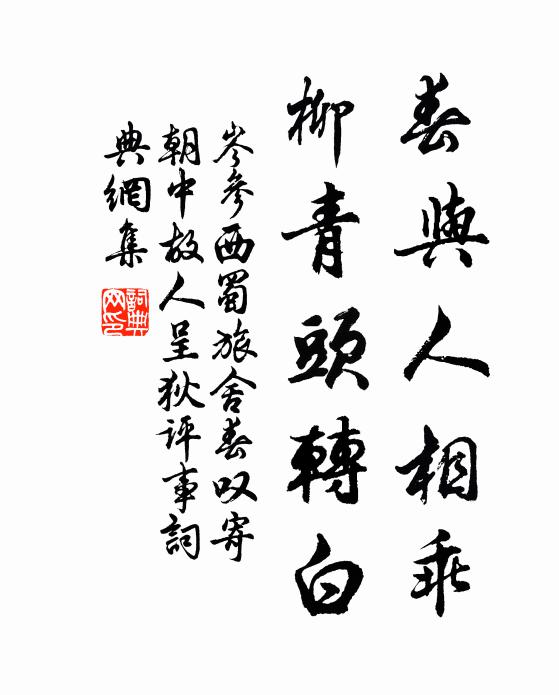 春與人相乖
柳青頭轉白
岑參西蜀旅舍春叹寄
朝中故人呈狄評事詞
典網集
詞典網印